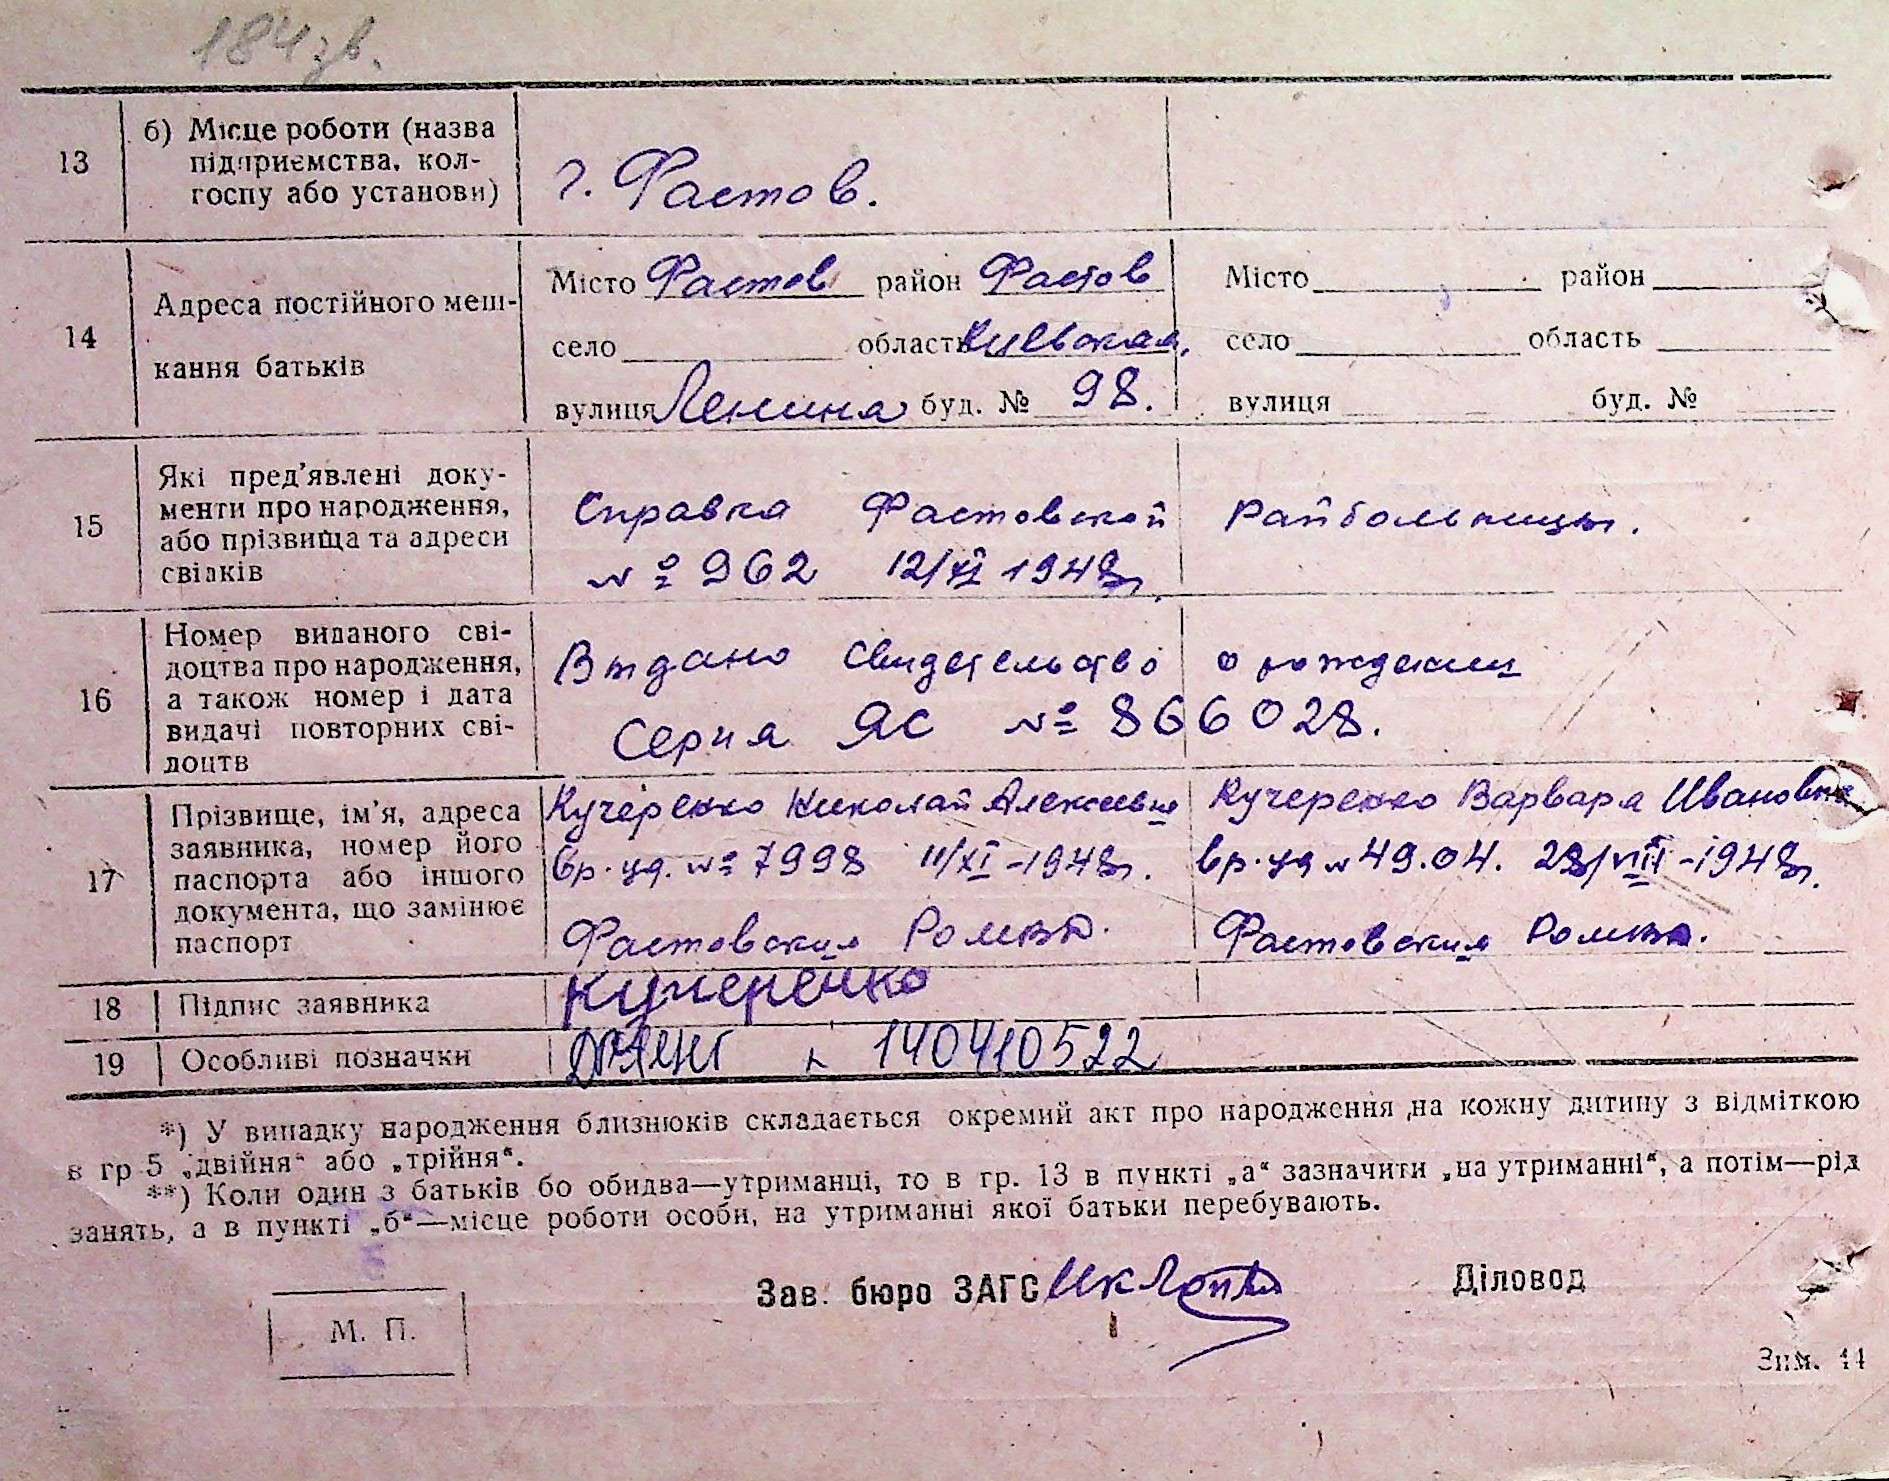 184 зв.
13 б) Місце роботи (назва
підприємства, кол-
госпу або установи)
г. Фастов.
14 Адреса постійного меш-
кання батьків
Місто Фастов район Фастов Місто район
село область Киевская, село область
вулиця Ленина буд. № 98. вулиця буд. №
15 Які пред'явлені доку-
менти про народження,
або прізвища та адреси
свідків
Справка Фастовской Райбольницы.
№ 962 12/XI 1948г.
16 Номер виданого сві-
доцтва про народження,
а також номер і дата
видачі повторних сві-
доцтв
Выдано свидетельство о рождении
Серия ЯС № 866028.
17 Прізвище, ім'я, адреса
заявника, номер його
паспорта або іншого
документа, що замінює
паспорт
Кучеренко Николай Алексеевич
вр. уд. № 7998 11/XI-1948г.
Фастовским Ромвд.
Кучеренко Варвара Ивановна
вр. уд № 49.04. 28/VIII-1948г.
Фастовским Ромвд.
18 Підпис заявника Кучеренко
19 Особливі позначки 140410522
*) У випадку народження близнюків складається окремий акт про народження на кожну дитину з відміткою
в гр 5 „двійня“ або „трійня“.
**) Коли один з батьків бо обидва—утриманці, то в гр. 13 в пункті „а“ зазначити „на утриманні“, а потім—рід
занять, а в пункті „б“—місце роботи особи, на утриманні якої батьки перебувають.
Зав. бюро ЗАГС Діловод
М. П.
Зим. 44